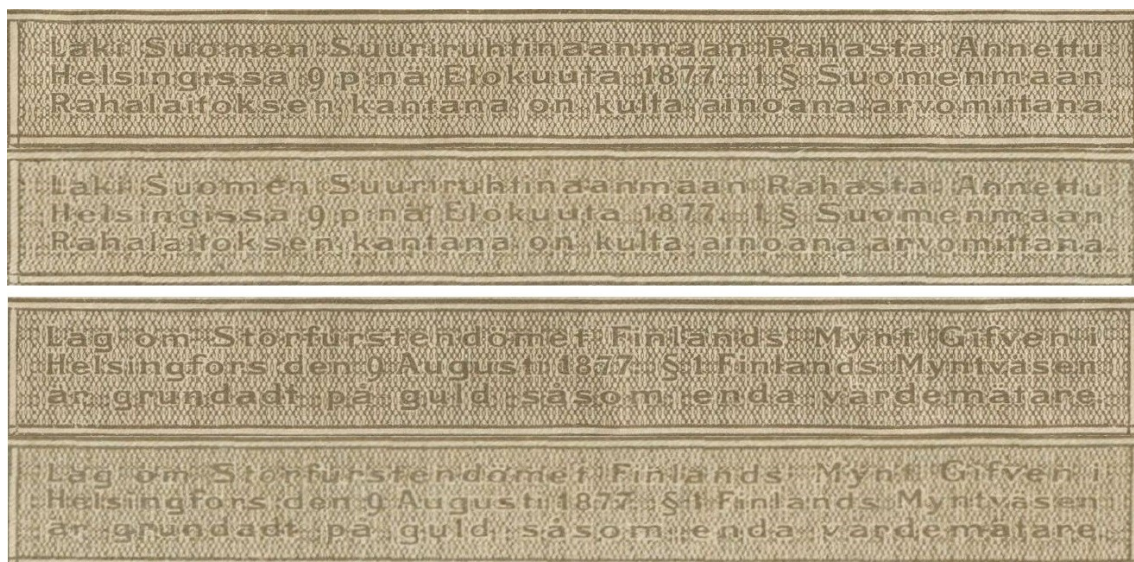 Laki Suomen Suuriruhtinaanmaan Rahasta. Annettu
Helsingissä 9 p:nä Elokuuta 1877. 1 § Suomenmaan
Rahalaitoksen kantana on kulta ainoana arvomittana.
Laki Suomen Suuriruhtinaanmaan Rahasta. Annettu
Helsingissä 9 p:nä Elokuuta 1877. 1 § Suomenmaan
Rahalaitoksen kantana on kulta ainoana arvomittana.
Lag om Storfurstendömet Finlands Mynt Gifven i
Helsingfors den 9 Augusti 1877. § 1 Finlands Myntväsen
är grundadt på guld såsom enda värdemätare.
Lag om Storfurstendömet Finlands Mynt Gifven i
Helsingfors den 9 Augusti 1877. § 1 Finlands Myntväsen
är grundadt på guld såsom enda värdemätare.